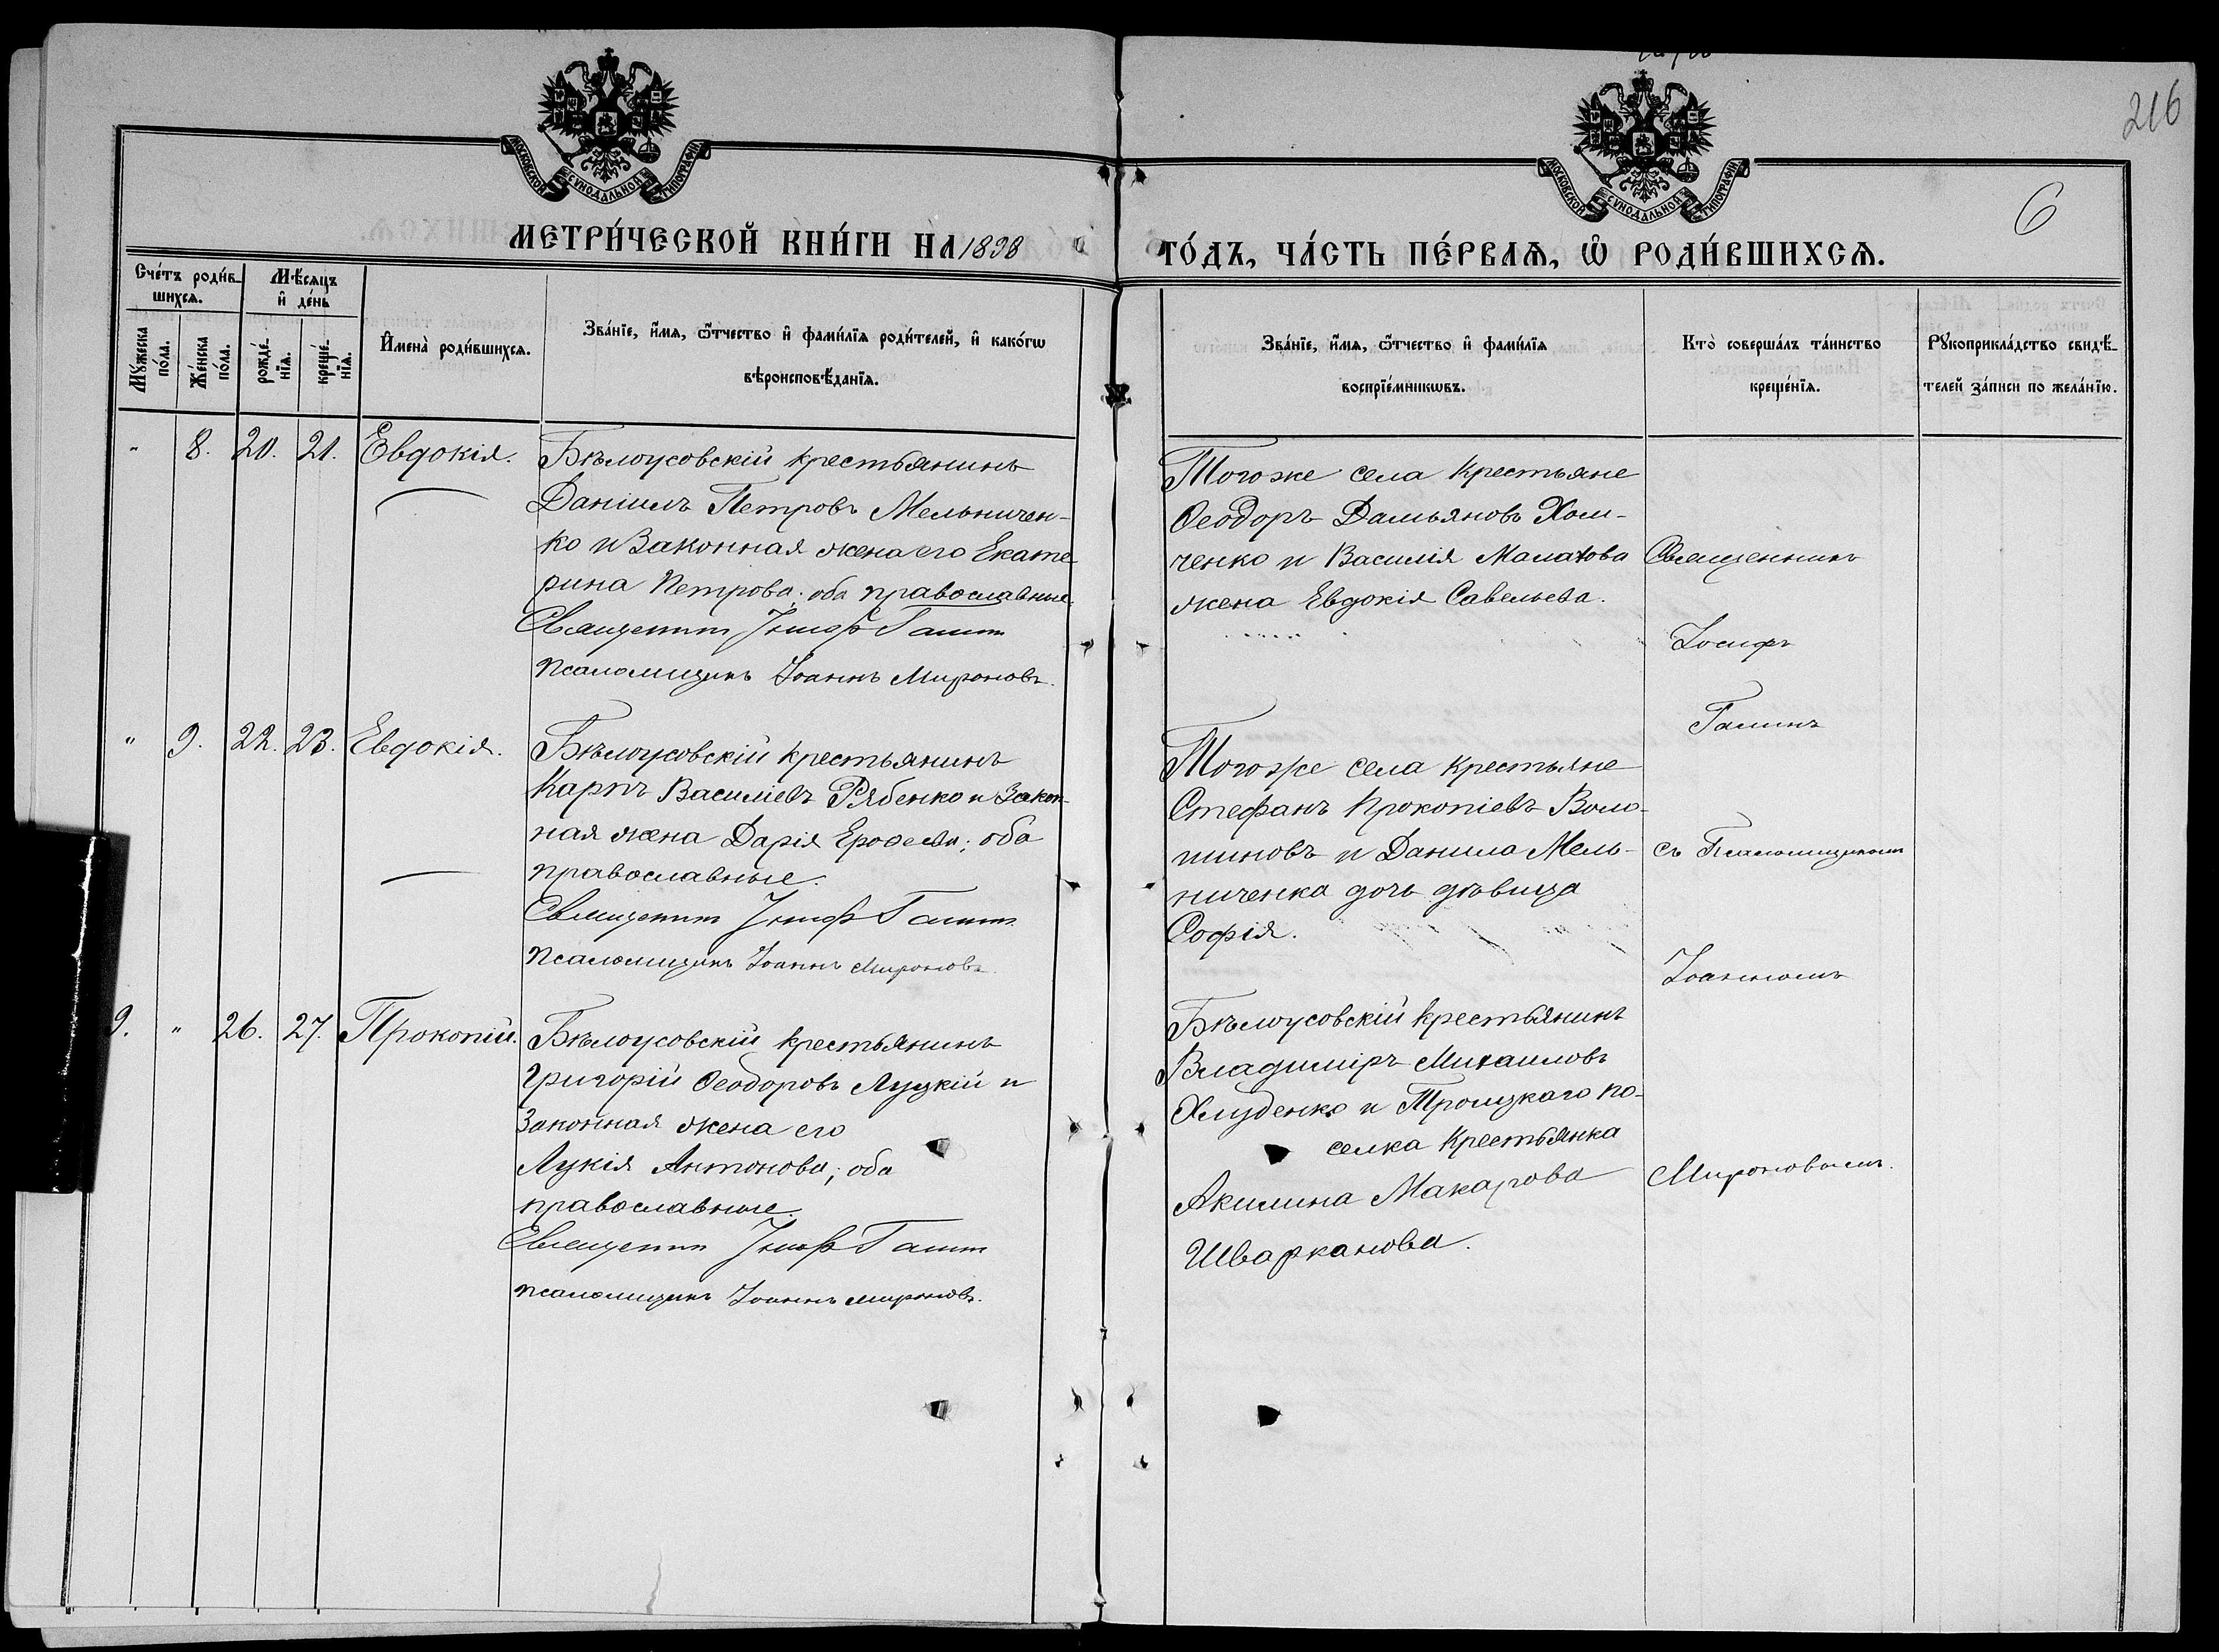 216
6
МОСКОВСКОЙ СУНОДАЛЬНОЙ ТИПОГРАФІИ
МОСКОВСКОЙ СУНОДАЛЬНОЙ ТИПОГРАФІИ
МЕТРИ́ЧЕСКОЙ КНИ́ГИ НА 1898
ГО́ДЪ, ЧА́СТЬ ПЕ́РВАѦ, Ѡ҆ РОДИ́ВШИХСѦ.
Сче́тъ роди́в-
шихсѧ.
Мѣ́сѧцъ
и҆ де́нь
Мꙋ́жеска
по́ла.
Же́нска
по́ла.
рожде́-
нїѧ.
креще́-
нїѧ.
И҆мена̀ роди́вшихсѧ.
Зва́нїе, и҆́мѧ, ѻ҆́тчество и҆ фами́лїѧ роди́телей, и҆ како́гѡ
вѣроисповѣ́данїѧ.
Зва́нїе, и҆́мѧ, ѻ҆́тчество и҆ фами́лїѧ
воспрїе́мникѡвъ.
Кто̀ соверша́лъ та́инство
креще́нїѧ.
Рꙋкоприкла́дство свидѣ́-
телей за́писи по жела́нїю.
" 8. 20. 21. Евдокія.
Бѣлоусовскій крестьянинъ
Даніилъ Петровъ Мельничен-
ко и Законная жена его Екате-
рина Петрова; оба православные.
Священникъ Іосифъ Галинъ
Псаломщикъ Іоаннъ Мироновъ.
Того же села крестьяне
Ѳеодоръ Дамьяновъ Хом-
ченко и Василія Малахова
жена Евдокія Савельева.
Священникъ
Іосифъ
Галинъ
" 9. 22. 23. Евдокія.
Бѣлоусовскій крестьянинъ
Карпъ Василіевъ Рябенко и Закон-
ная жена Дарія Ерофеева; оба
православные.
Священникъ Іосифъ Галинъ
Псаломщикъ Іоаннъ Мироновъ.
Того же села крестьяне
Стефанъ Прокопіевъ Воло-
шиновъ и Данила Мель-
ниченка дочь дѣвица
Софія.
съ Псаломщикомъ
Іоанномъ
9. " 26. 27. Прокопій.
Бѣлоусовскій крестьянинъ
Григорій Ѳеодоровъ Луцкій и
Законная жена его
Лукія Антонова; оба
православные.
Священникъ Іосифъ Галинъ
Псаломщикъ Іоаннъ Мироновъ.
Бѣлоусовскій крестьянинъ
Владиміръ Михаиловъ
Хлуденко и Троицкаго по-
селка крестьянка
Акилина Макарова
Шварканова.
Мироновымъ.